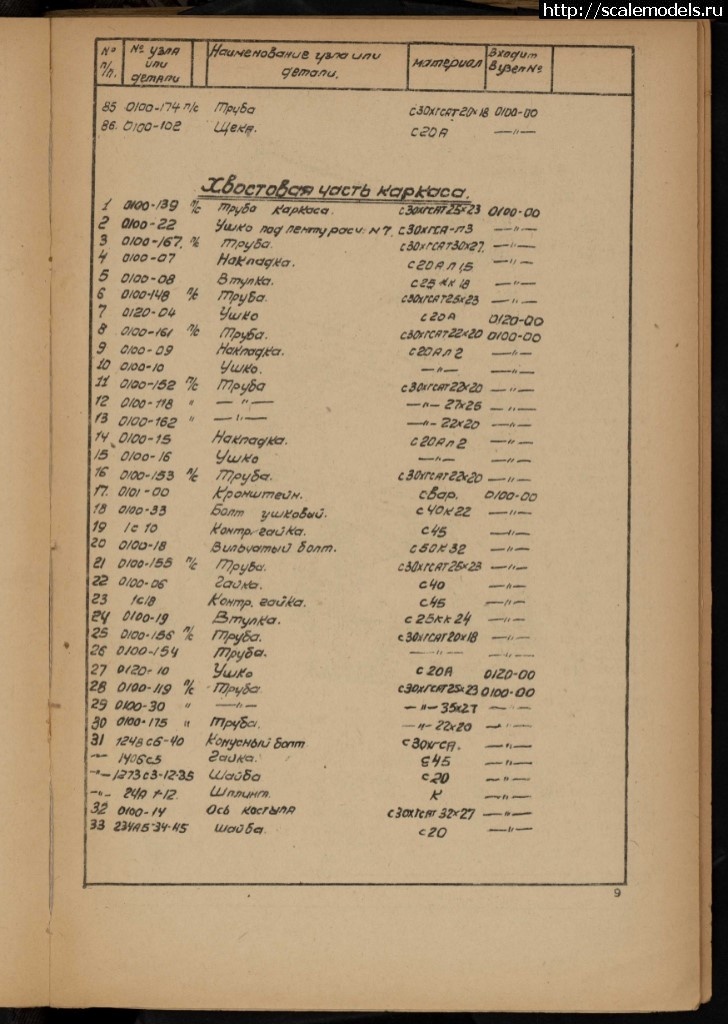 http://scalemodels.ru
№ п/п. № узла или детали Наименование узла или детали. материал Входит в узел №
85 0100-174 п/с Труба с30хгсАТ20×18 0100-00
86. 0100-102 Щека. с20А —"—
Хвостовая часть каркаса.
1 0100-139 п/с Труба каркаса. с30хгсАТ25×23 0100-00
2 0100-22 Ушко под ленту расч. N7. с30хгсА-л3 —"—
3 0100-167. п/с Труба. с30хгсАТ30×27. —"—
4 0100-07 Накладка. с20А л 1,5 —"—
5 0100-08 Втулка. с25 кк 18 —"—
6 0100-148 п/с Труба. с30хгсАТ25×23 —"—
7 0120-04 Ушко с20А 0120-00
8 0100-161 п/с Труба. с30хгсАТ22×20 0100-00
9 0100-09 Накладка. с20А л 2 —"—
10 0100-10 Ушко. —"— —"—
11 0100-152 п/с Труба с30хгсАТ22×20 —"—
12 0100-118 " —"— —"— 27×25 —"—
13 0100-162 " —"— —"— 22×20 —"—
14 0100-15 Накладка. с20А л 2 —"—
15 0100-16 Ушко —"— —"—
16 0100-153 п/с Труба. с30хгсАТ22×20 —"—
17. 0101-00 Кронштейн. свар. 0100-00
18 0100-33 Болт ушковый. с40к22 —"—
19 1с 10 Контр. гайка. с45 —"—
20 0100-18 Вильчатый болт. с50К32 —"—
21 0100-155 п/с Труба. с30хгсАТ25×23 —"—
22 0100-06 Гайка. с40 —"—
23 1с18 Контр. гайка. с45 —"—
24 0100-19 Втулка. с25кк 24 —"—
25 0100-156 п/с Труба. с30хгсАТ20×18 —"—
26 0100-154 Труба. —"— —"—
27 0120-10 Ушко с20А 0120-00
28 0100-119 п/с Труба. с30хгсАТ25×23 0100-00
29 0100-30 " —"— —"— 35×27 —"—
30 0100-175 " Труба. —"— 22×20 —"—
31 1248 с6-40 Конусный болт с30хгсА. —"—
—"— 1406с5 Гайка. с45 —"—
—"— 1273 с3-12-35 Шайба с20 —"—
—"— 24А 1-12. Шплинт. К —"—
32 0100-14 Ось костыля с30хгсАТ 32×27 —"—
33 234А5-34-45 шайба. с20 —"—
9